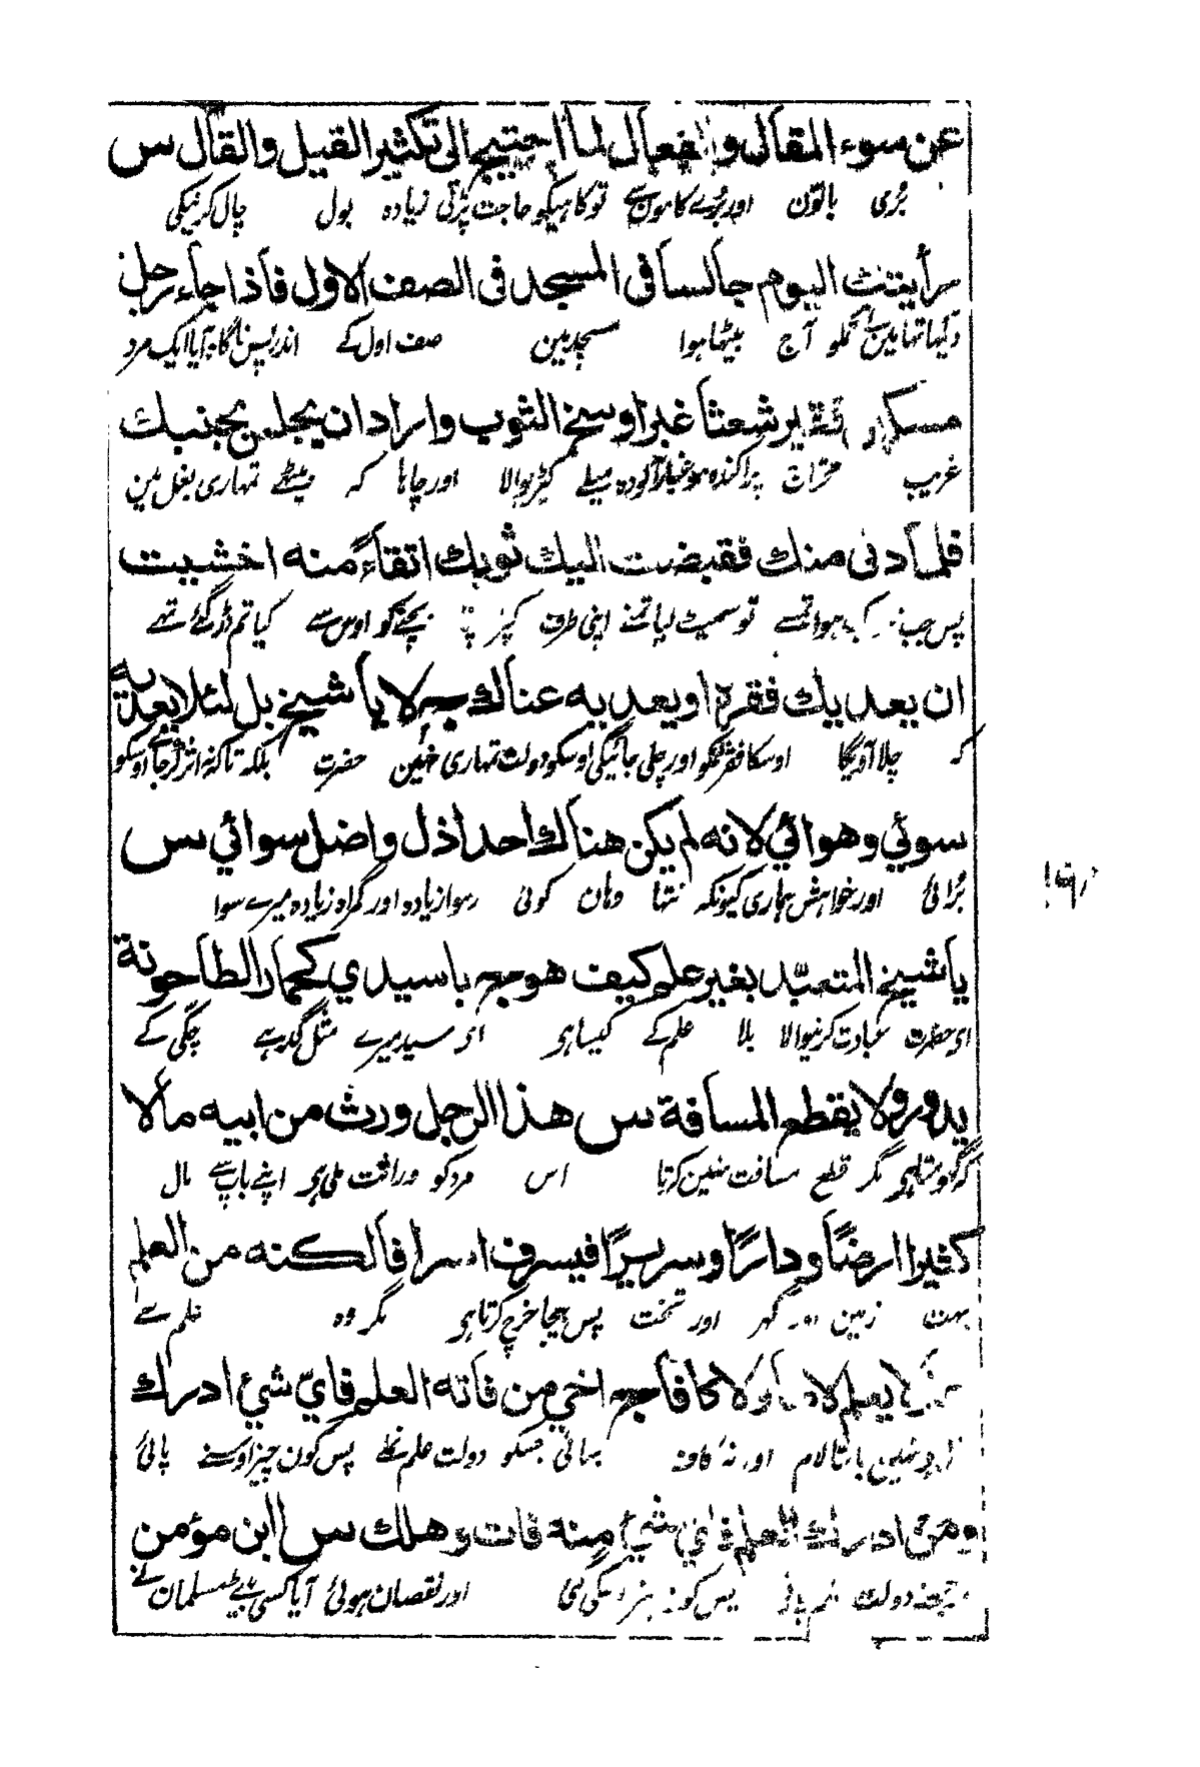 عن سوء المقال والفعال لما احتيج الى تكثير القيل والقال س
بُری باتون اور بُرے کامون سے تو کاہیکو حاجت پڑتی زیادہ بول چال کرنیکی
رأيتك اليوم جالسا فى المسجد فى الصف الاول فاذا جاء رجل
دیکہا تہا مین نے تمکو آج بیٹھا ہوا مسجد مین صف اول کے اندر پس ناگاہ آیا ایک مرد
مسكين فقير شعثا غبرا وسخ الثوب واراد ان يجلس بجنبك
غریب پراکندہ مو غبار آلودہ میلے کپڑیوالا اور چاہا کہ بیٹھے تمہاری بغل مین
فلما دنى منك فقبضت اليك ثوبك اتقاءً منه اخشيت
پس جب ہوا تمسے تو سمیٹ لیا تمنے اپنی طرف بچنے کو اوس سے کیا تم ڈر گئے تھے
ان يعديك فقره او يعديه غناك ج لا يا شيخ بل لئلا يعديه
کہ چلا آویگا اوسکا فقر تمکو اور چلی جائیگی اوسکو دولت تمہاری نہین حضرت بلکہ تاکہ نہ اثر کر جائے اوسکو
سوئي وهوائي لانه لم يكن هناك احد اذل واضل سوائي س
بُرائی اور خواہش ہماری کیونکہ نتہا وہان کوئی رسوا زیادہ اور گمراہ زیادہ میرے سوا
يا شيخ المتعبّد بغير علم كيف هو ج يا سيدي كحمار الطاحونة
ای حضرت عبادت کرنیوالا بلا علم کے کیسا ہی ای سید میرے مثل گدہے چکی کے
يدور ولا يقطع المسافة س هذا الرجل ورث من ابيه مالا
کہ گہومتا ہی مگر قطع مسافت نہین کرتا اس مرد کو وراثت ملی ہی اپنے باپ سے مال
كثيرا ارضًا ودارًا وسريرًا فيسرف اسرافا لكنه من العلم
بہت زمین اور گہر اور تخت پس بیجا خرچ کرتا ہی مگر وہ علم سے
لا يعلم لاما ولا كافا ج اخي من فاته العلم فايّ شيء ادرك
نہین جانتا لام اور نہ کاف بہائی جسکو دولت علم نملے پس کون چیز اوسنے پائی
ومن ادرك العلم فاي شيء منه فات وهلك س ا ابن مؤمن
دولت پائی پس کون اور نقصان ہوئی آیا کسی بیٹے مسلمان نے